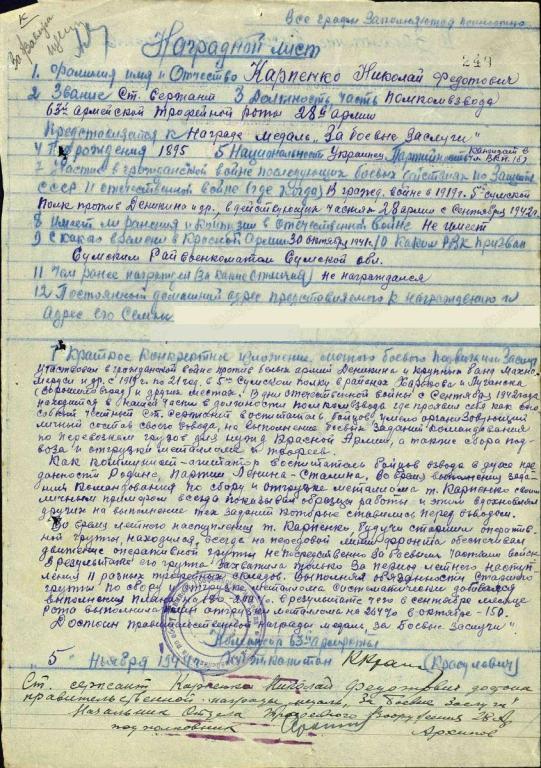 Все графы заполняются полностью
249
Наградной лист
1. Фамилия имя и Отчество Карпенко Николай Федотович
2 Звание Ст. сержант 3 Должность, часть Помкомвзвода
63й армейской Трофейной Роты 28й армии
Представляется к Награде медаль "За боевые Заслуги"
4 Год рождения 1895 5 Национальность Украинец Партийность Кандидат в чл. ВКП(б)
7 Участие в гражданской войне последующих боевых действиях по Защите
СССР и отечественной войне (где, когда) В граждан. войне в 1919 г. 5й Сумской
Полк против Деникина и др., в действующих частях 28 армии с Сентября 1942г.
8 Имеет ли ранения и контузии в Отечественной войне Не имеет
9 С какого времени в Красной Армии 30 октября 1941 10 Каким РВК Призван
Сумским Райвоенкоматом Сумской обл.
11 Чем ранее награжден (за какие отличия) не награждался
12 Постоянный домашний адрес представляемого к награждению и
адрес его Семьи
1 Краткое конкретное изложение личного боевого подвига или Заслуг
Участвовал в гражданской войне против белых армий Деникина и крупных банд Махно,
Маруси и др. с 1919 по 21 год, в 5м Сумском полку в районах Харькова и Луганска
(Ворошиловград) и других местах. В дни отечественной войны с Сентября 1942 года
находится в нашей части в должности помкомвзвода где проявил себя как
честный Ст. сержант воспитатель бойцов, умело организовующий
личный состав своего взвода, на выполнение боевых Заданий Командования
по перевозкам грузов для нужд Красной Армии, а также сбора под-
воза и отгрузки металлолома и трофеев.
Как коммунист-агитатор воспитывал бойцов взвода в духе пре-
данности Родине, Партии Ленина-Сталина. Во время выполнения зада-
ния Командования по сбору и отгрузке металлолома т. Карпенко своим
личным примером всегда показывал образцы работы и этим вдохновлял
других на выполнение тех заданий которые ставились перед взводом.
Во время летнего наступления т. Карпенко будучи старшим оператив-
ной группы, находился всегда на передовой линии фронта обеспечивая
движение оперативной группы непосредственно за боевыми частями войск
В результате его группа захватила только за период летнего наступ-
ления 11 разных трофейных складов. Выполняя обязанности Старшего
группы по сбору и отгрузке металлолома систематически добивался
выполнения плана на 180-200%, в результате чего в сентябре месяце
рота выполнила план отгрузки металлолома на 264% в октябре - 150.
Достоин правительственной награды медаль "За боевые Заслуги"
Командир 63й армтрофроты
"5" Ноября 1943 г. капитан (Красулович)
Ст. сержант Карпенко Николай Федотович достоин
правительственной награды медаль "За боевые заслуги"
Начальник Отдела Трофейного Вооружения 28 А
подполковник Архипов